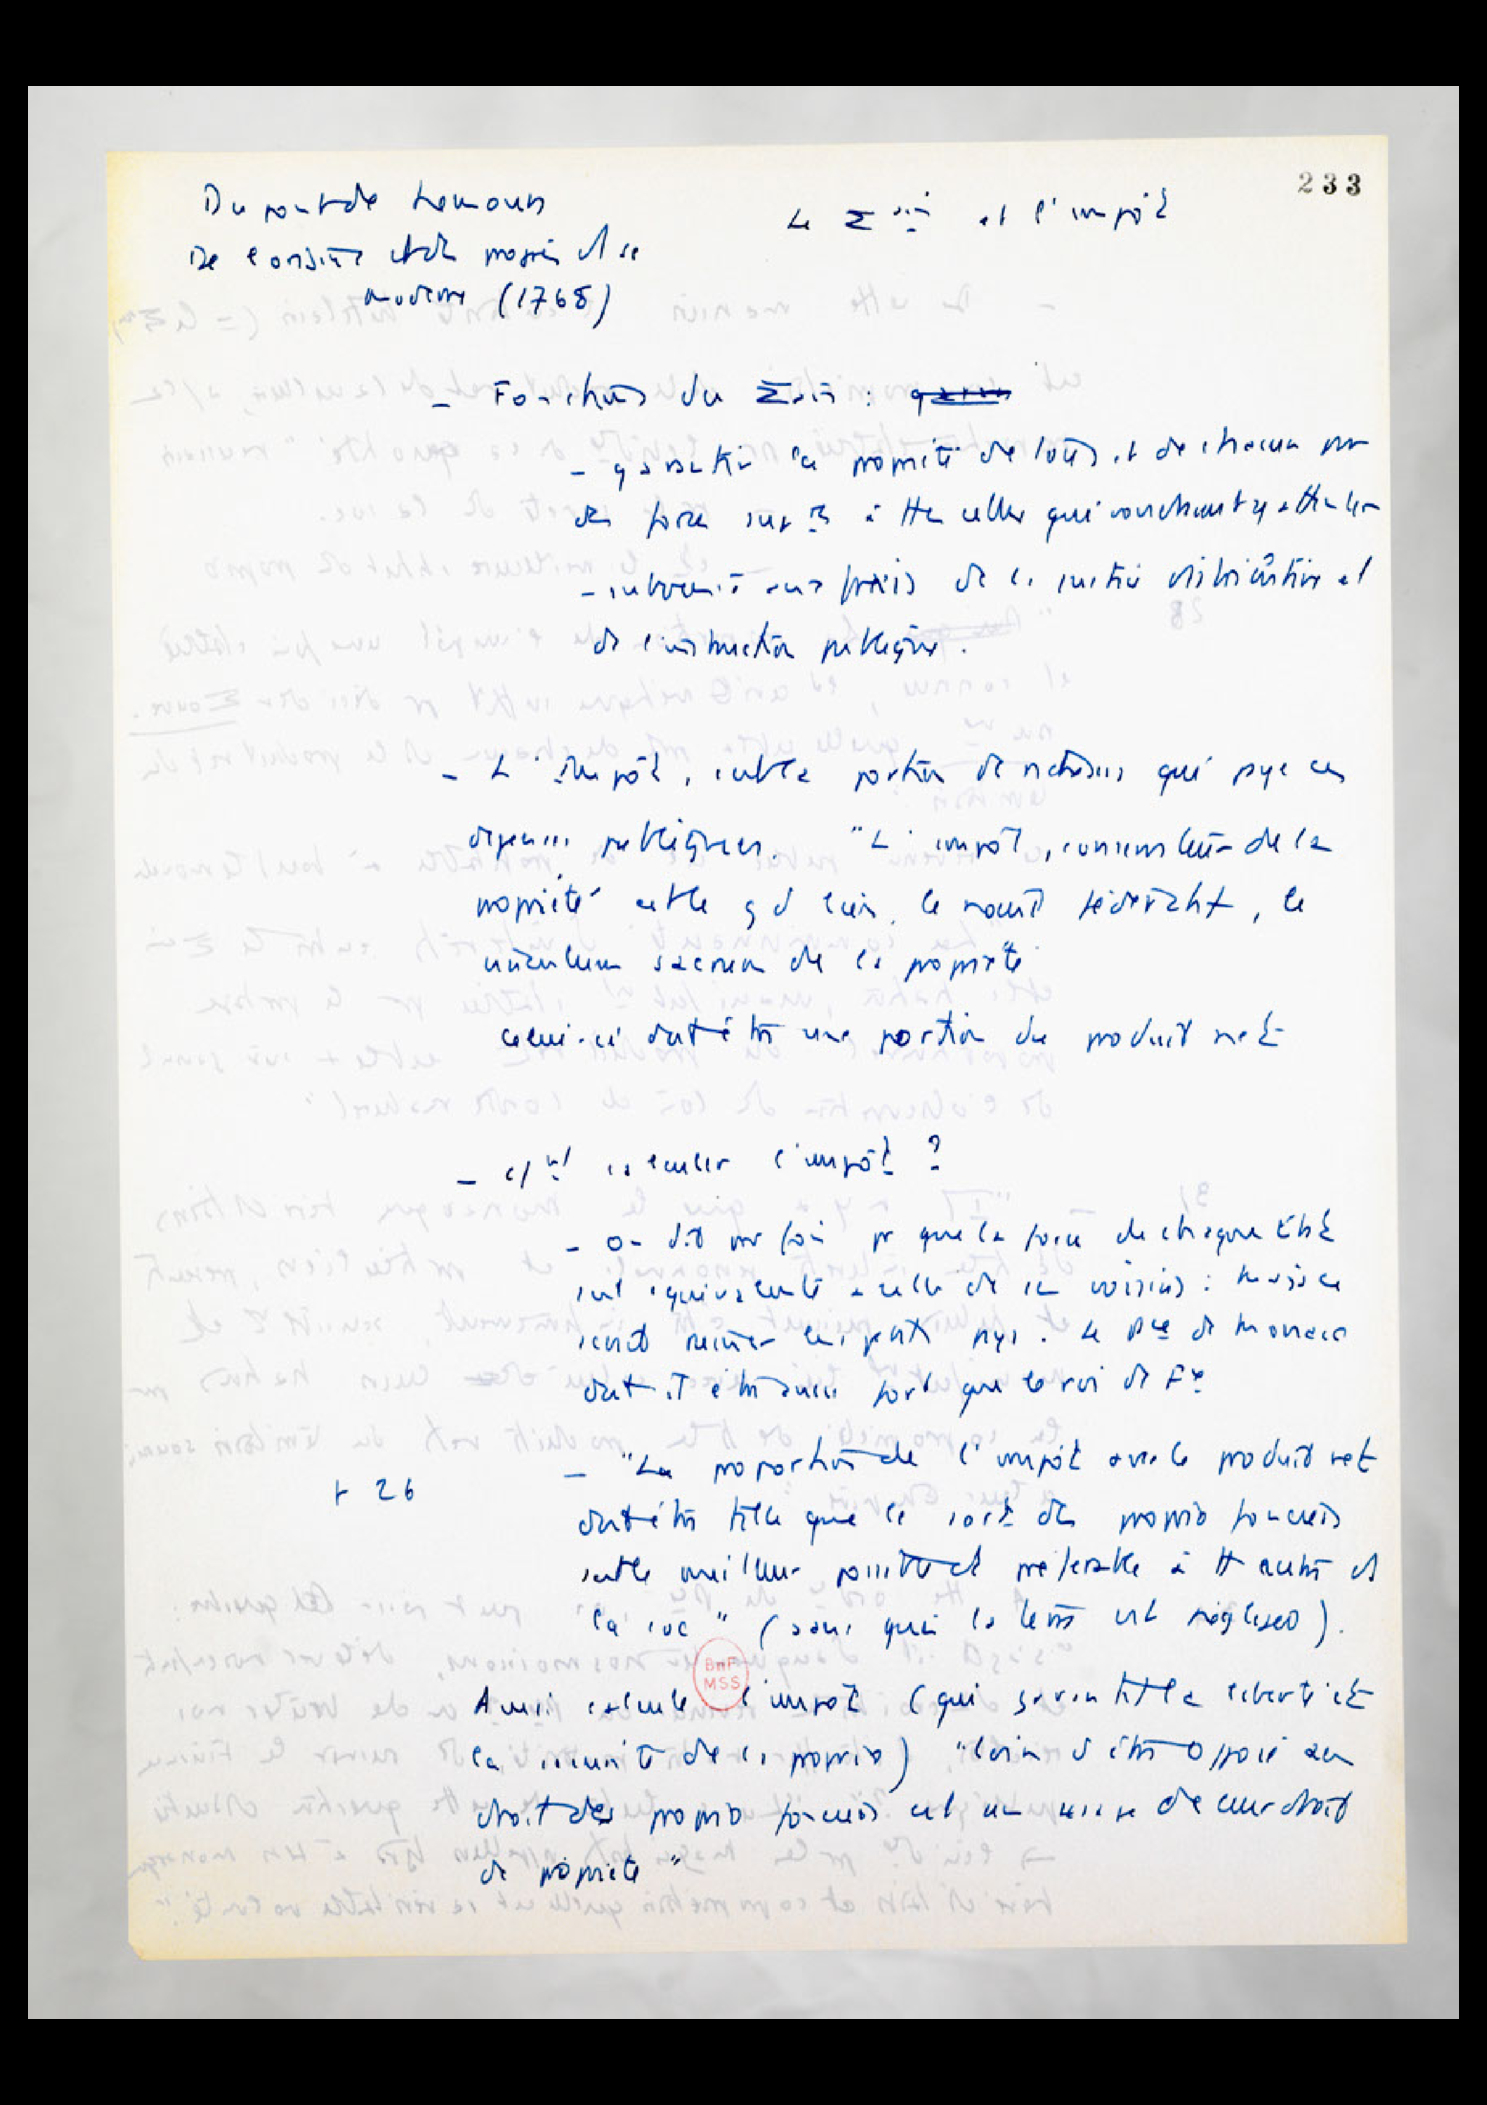 233
Dupont de Nemours
De l'origine et des progrès d'1 sc
moderne (1768)
Le Σain et l'impôt
- Fonctions du Σain :
- garantir la propriété de tous et de chacun par
des forces sup à ttes celles qui voudraient y attenter
- subvenir aux frais de la justice distributive et
de l'instruction publique.
- L'impôt, est la portion de richesses qui paye ces
dépenses publiques. "L'impôt, conservateur de la
propriété est le gd lien, le nœud fédératif, le
vinculum sacrum de la propriété
Celui-ci doit être une portion du produit net
- c/nt calculer l'impôt ?
- On dit parfois que la force de chaque Etat
soit équivalente à celle de ses voisins : mais ce
serait ruiner les petits pays. Le Pce de Monaco
doit-il être aussi fort que le roi de Fce
r 26
- "La proportion de l'impôt avec le produit net
doit être telle que le sort des proprio fonciers
soit le meilleur possible et préférable à tt autre ds
la soc" (sans quoi la terre est négligée).
BnF
MSS
Ainsi calculé l'impôt (qui garantit la liberté et
la sécurité de la proprio) "loin d'être opposé au
droit des proprio fonciers est un usage de leur droit
de propriété"